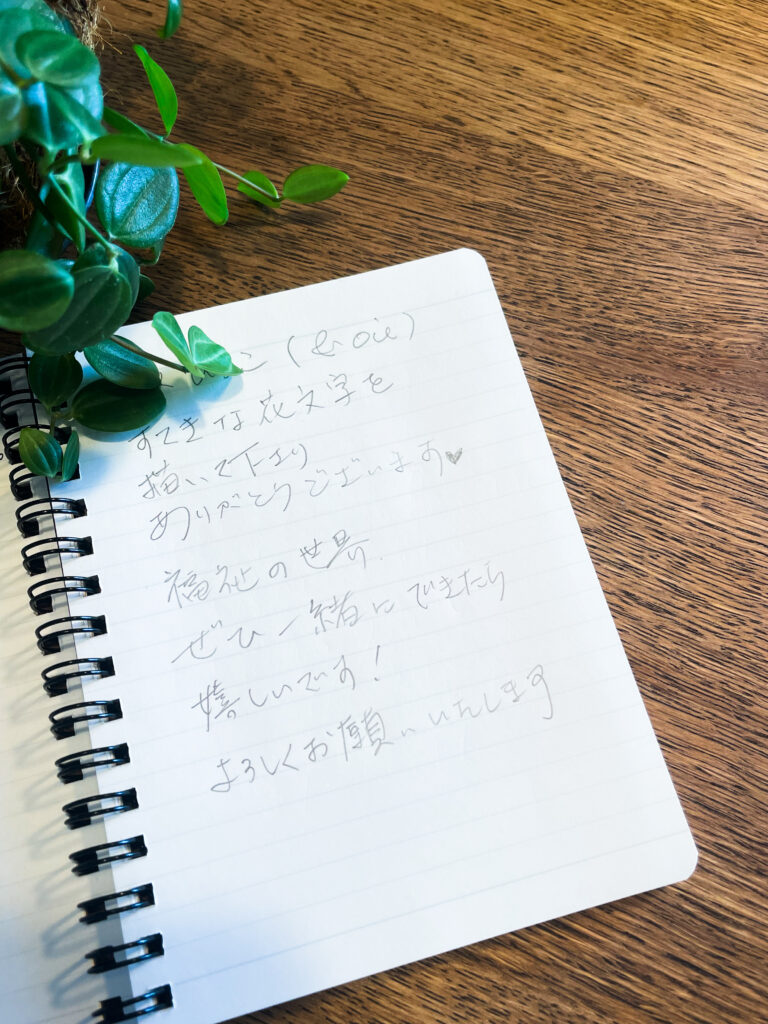 こ (& Oie)
すてきな花文字を
描いて下さり
ありがとうございます♥
福祉の世界
ぜひ一緒にできたら
嬉しいです!
よろしくお願いいたします